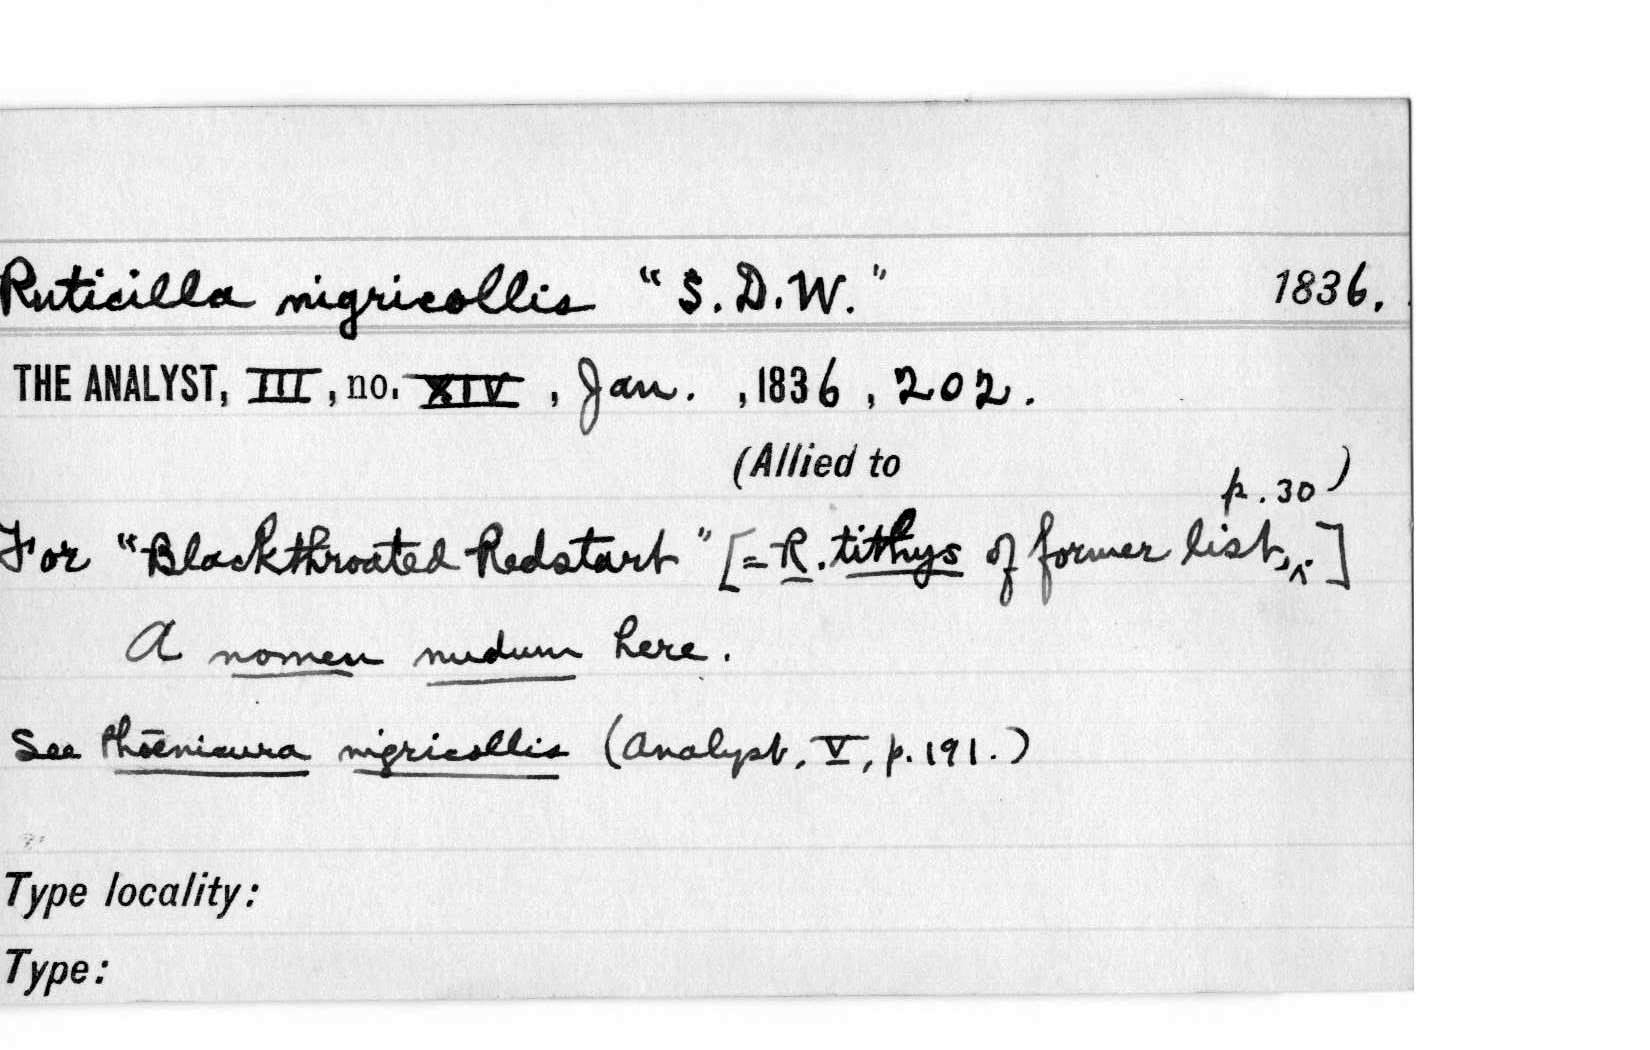 Ruticilla nigricollis "S.D.W." 1836.
THE ANALYST, III, no. XIV, Jan. , 1836, 202.
(Allied to
p. 30)
For "Blackthroated Redstart" [=R. tithys of former list,^]
A nomen nudum here.
See Phœnicura nigricollis (Analyst, V, p. 191.)
Type locality:
Type: